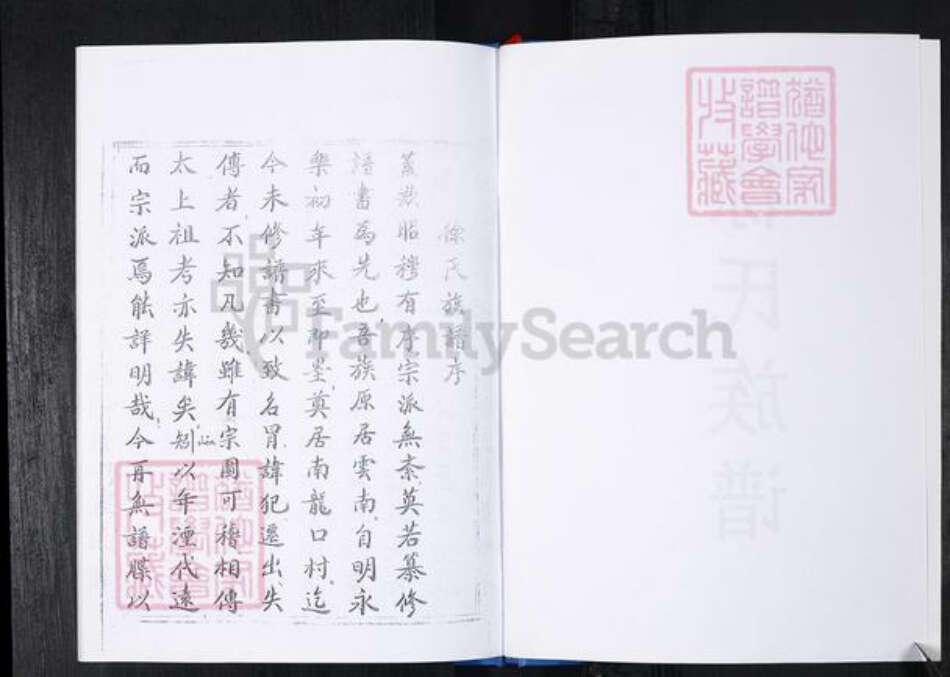 徐氏族譜序
蓋聞昭穆有序宗派無紊莫若纂修
譜書為先也吾族原居雲南自明永
樂初年來至即墨奠居南龍口村迄
今未修譜書以致名冒諱犯遷出失
傳者不知凡幾雖有宗圖可稽相傳
太上祖考亦失諱矣矧以年湮代遠
而宗派焉能詳明哉今再無譜牒以
猶他家
譜學會
收藏
氏族谱
FamilySearch
猶他家
譜學會
收藏